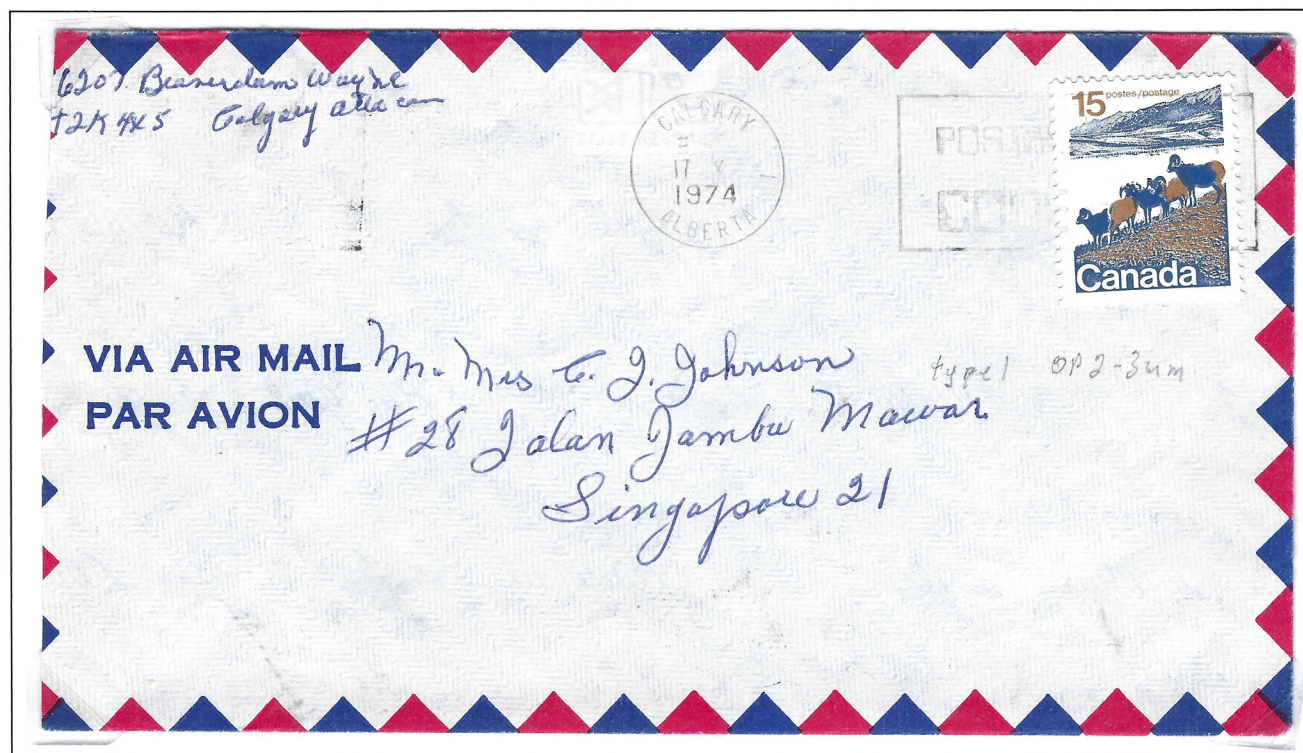 6207 Beaverdam Way NE
T2K 4K5 Calgary Alta can
CALGARY
17 X
1974
ALBERTA
POSTAL
CODE
15 postes/postage
Canada
VIA AIR MAIL
PAR AVION
Mr. Mrs C. J. Johnson
#28 Jalan Jambu Mawar
Singapore 21
type1 OP2-3mm